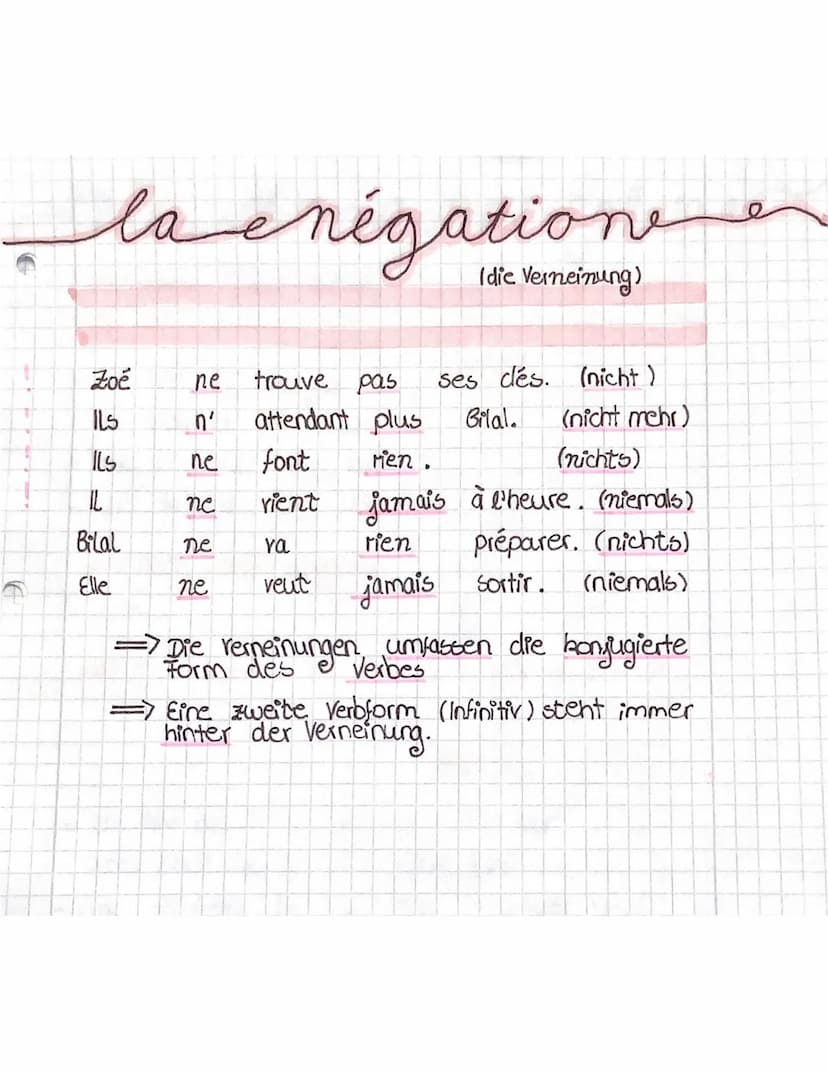 la négation
(die Verneinung)
Zoé ne trouve pas ses clés. (nicht)
Ils n' attendant plus Bilal. (nicht mehr)
Ils ne font rien. (nichts)
Il ne vient jamais à l'heure. (niemals)
Bilal ne va rien préparer. (nichts)
Elle ne veut jamais sortir. (niemals)
=> Die Verneinungen umfassen die konjugierte
Form des Verbes
=> Eine zweite Verbform (Infinitiv) steht immer
hinter der Verneinung.